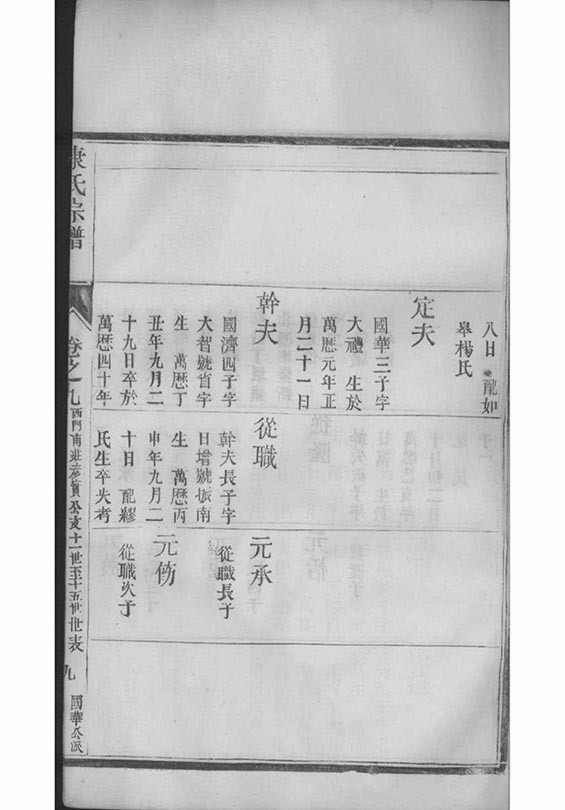 八日 配如
皋楊氏
定夫
國華三子字
大禮 生於
萬厯元年正
月二十一日
幹夫
國濟四子字
大智號首字
生 萬厯丁
丑年九月二
十九日卒於
萬厯四十年
從職
幹夫長子字
日增號振南
生 萬厯丙
申年九月二
十日 配繆
氏生卒失考
元承
從職長子
元仿
從職次子
康氏宗譜
卷之九
西門南莊彥賓公支十一世至十五世世表
九
國華公派